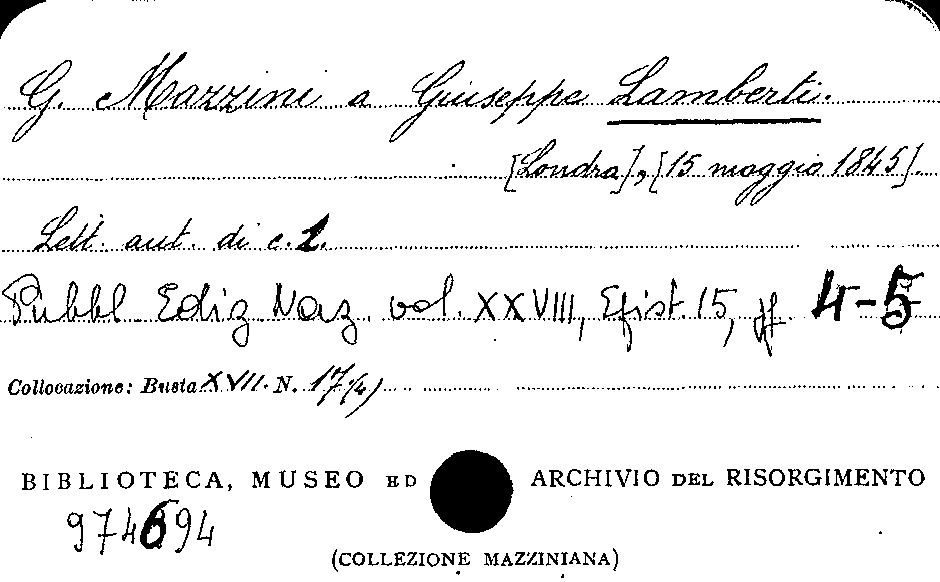 G. Mazzini a Giuseppe Lamberti.
[Londra], [15 maggio 1845].
Lett. aut. di c. 1.
Pubbl. Ediz. Naz. vol. XXVIII, Epist. 15, pp. 4-5
Collocazione: Busta XVII. N. 17(4)
BIBLIOTECA, MUSEO ED ARCHIVIO DEL RISORGIMENTO
974694
(COLLEZIONE MAZZINIANA)